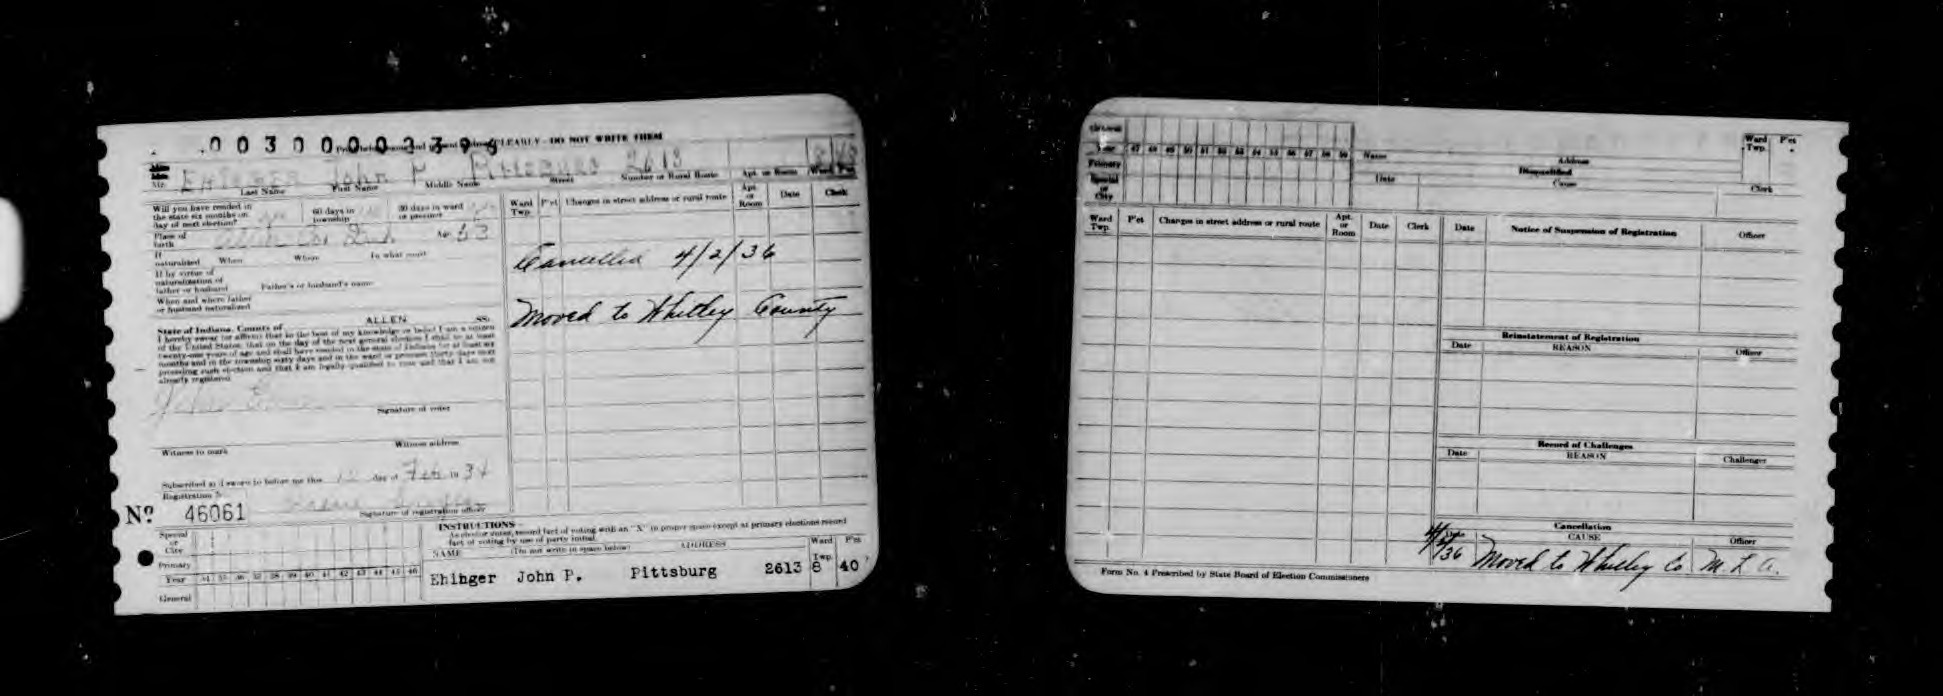 0030000398
CLEARLY - DO NOT WRITE THEM
Mr. Ehinger John P. Pittsburg 2613 8 40
Last Name First Name Middle Name Street Number or Rural Route Apt. or Room Ward P'ct
Will you have resided in
the state six months on
day of next election?
60 days in
township
30 days in ward
or precinct
Place of
birth Allen Co. Ind. Age 63
If
naturalized When Where In what court
If by virtue of
naturalization of
father or husband Father's or husband's name
When and where father
or husband naturalized
State of Indiana, County of ALLEN SS:
I hereby swear (or affirm) that to the best of my knowledge or belief I am a citizen
of the United States; that on the day of the next general election I shall be at least
twenty-one years of age and shall have resided in the state of Indiana for at least six
months and in the township sixty days and in the ward or precinct thirty days next
preceding such election and that I am legally qualified to vote and that I am not
already registered.
Signature of voter
Witness to mark Witness address
Subscribed and sworn to before me this 12 day of Feb 1934
Registration
Nº 46061
Signature of registration officer
Special
or
City
Primary
Year 34 35 36 37 38 39 40 41 42 43 44 45 46
General
Ward
Twp. P'ct Changes in street address or rural route Apt.
or
Room Date Clerk
Cancelled 4/2/36
Moved to Whitley County
INSTRUCTIONS
As elector votes, record fact of voting with an "X" in proper space except at primary elections record
fact of voting by use of party initial.
NAME (Do not write in space below) ADDRESS Ward
Twp. P'ct
Ehinger John P. Pittsburg 2613 8 40
Year 47 48 49 50 51 52 53 54 55 56 57 58 59
Primary
Special
or
City
Name Address Ward
Twp. P'ct
Disqualified
Date Cause Clerk
Ward
Twp. P'ct Changes in street address or rural route Apt.
or
Room Date Clerk
Date Notice of Suspension of Registration Officer
Reinstatement of Registration
Date REASON Officer
Record of Challenges
Date REASON Challenger
Cancellation
Date CAUSE Officer
4/2/36 Moved to Whitley Co M. L. A.
Form No. 4 Prescribed by State Board of Election Commissioners